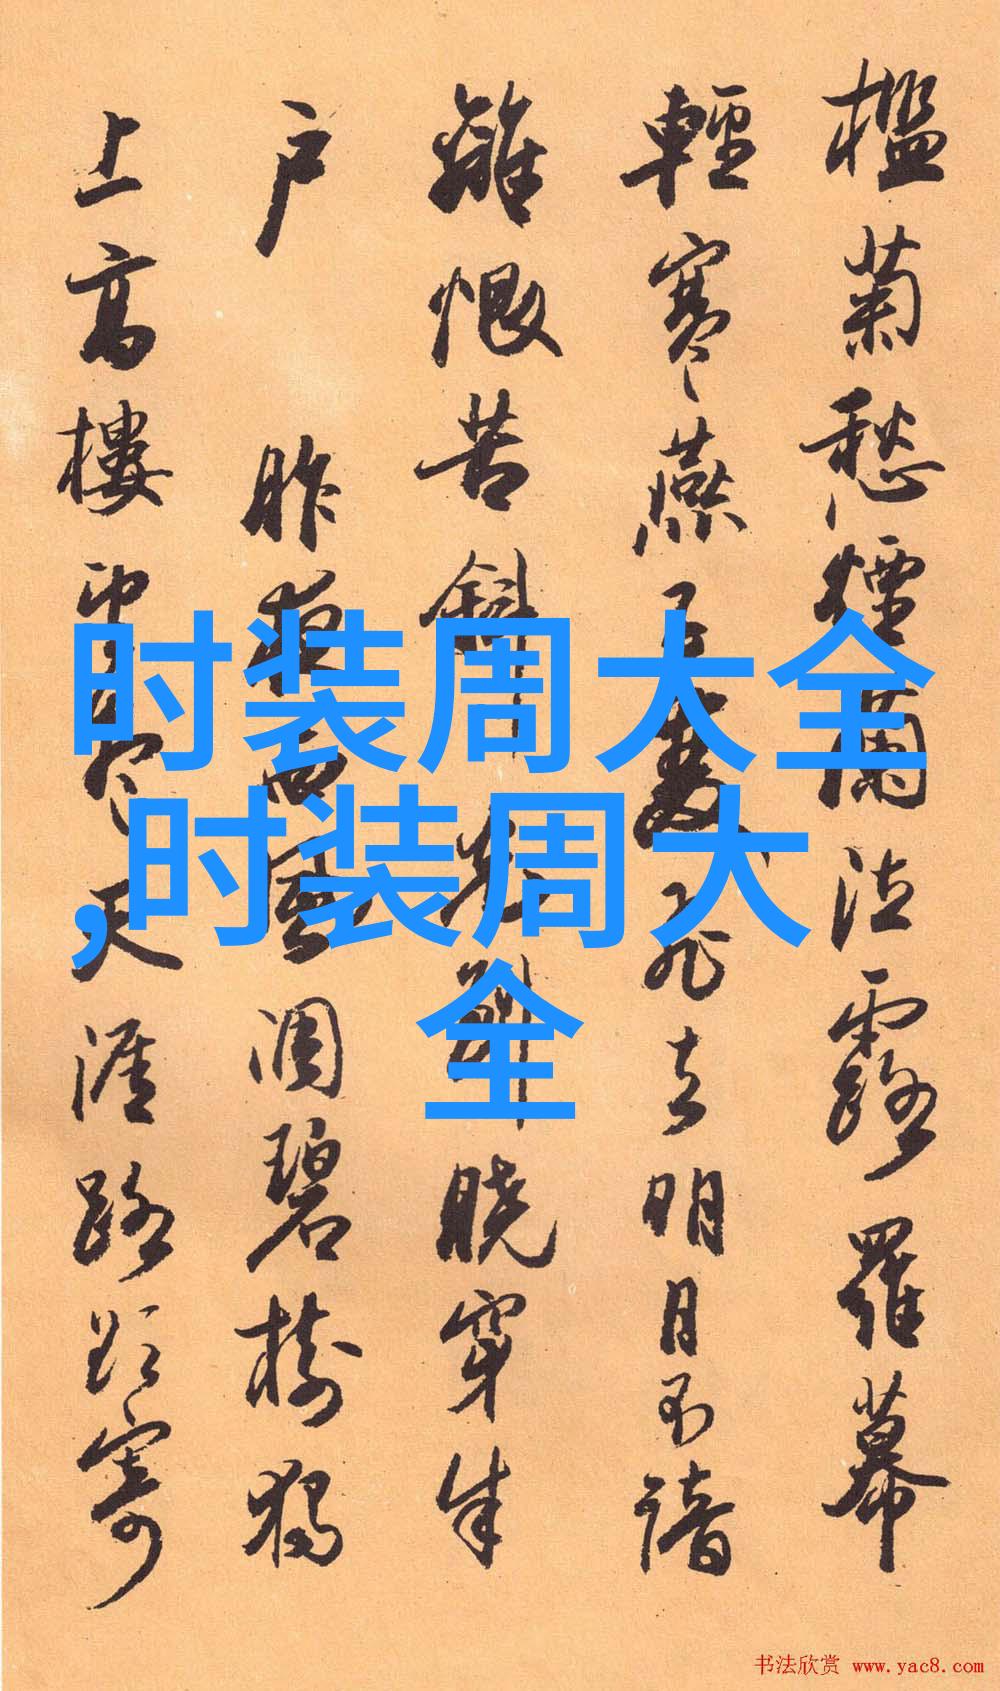 檻菊愁煙蘭泣露羅幕
輕寒燕子雙飛去明月不諳
離恨苦斜光到曉穿朱
户 昨夜西風凋碧樹獨
上高樓望盡天涯路欲寄
时装周大全
,时装周大
全
书法欣赏 www.yac8.com